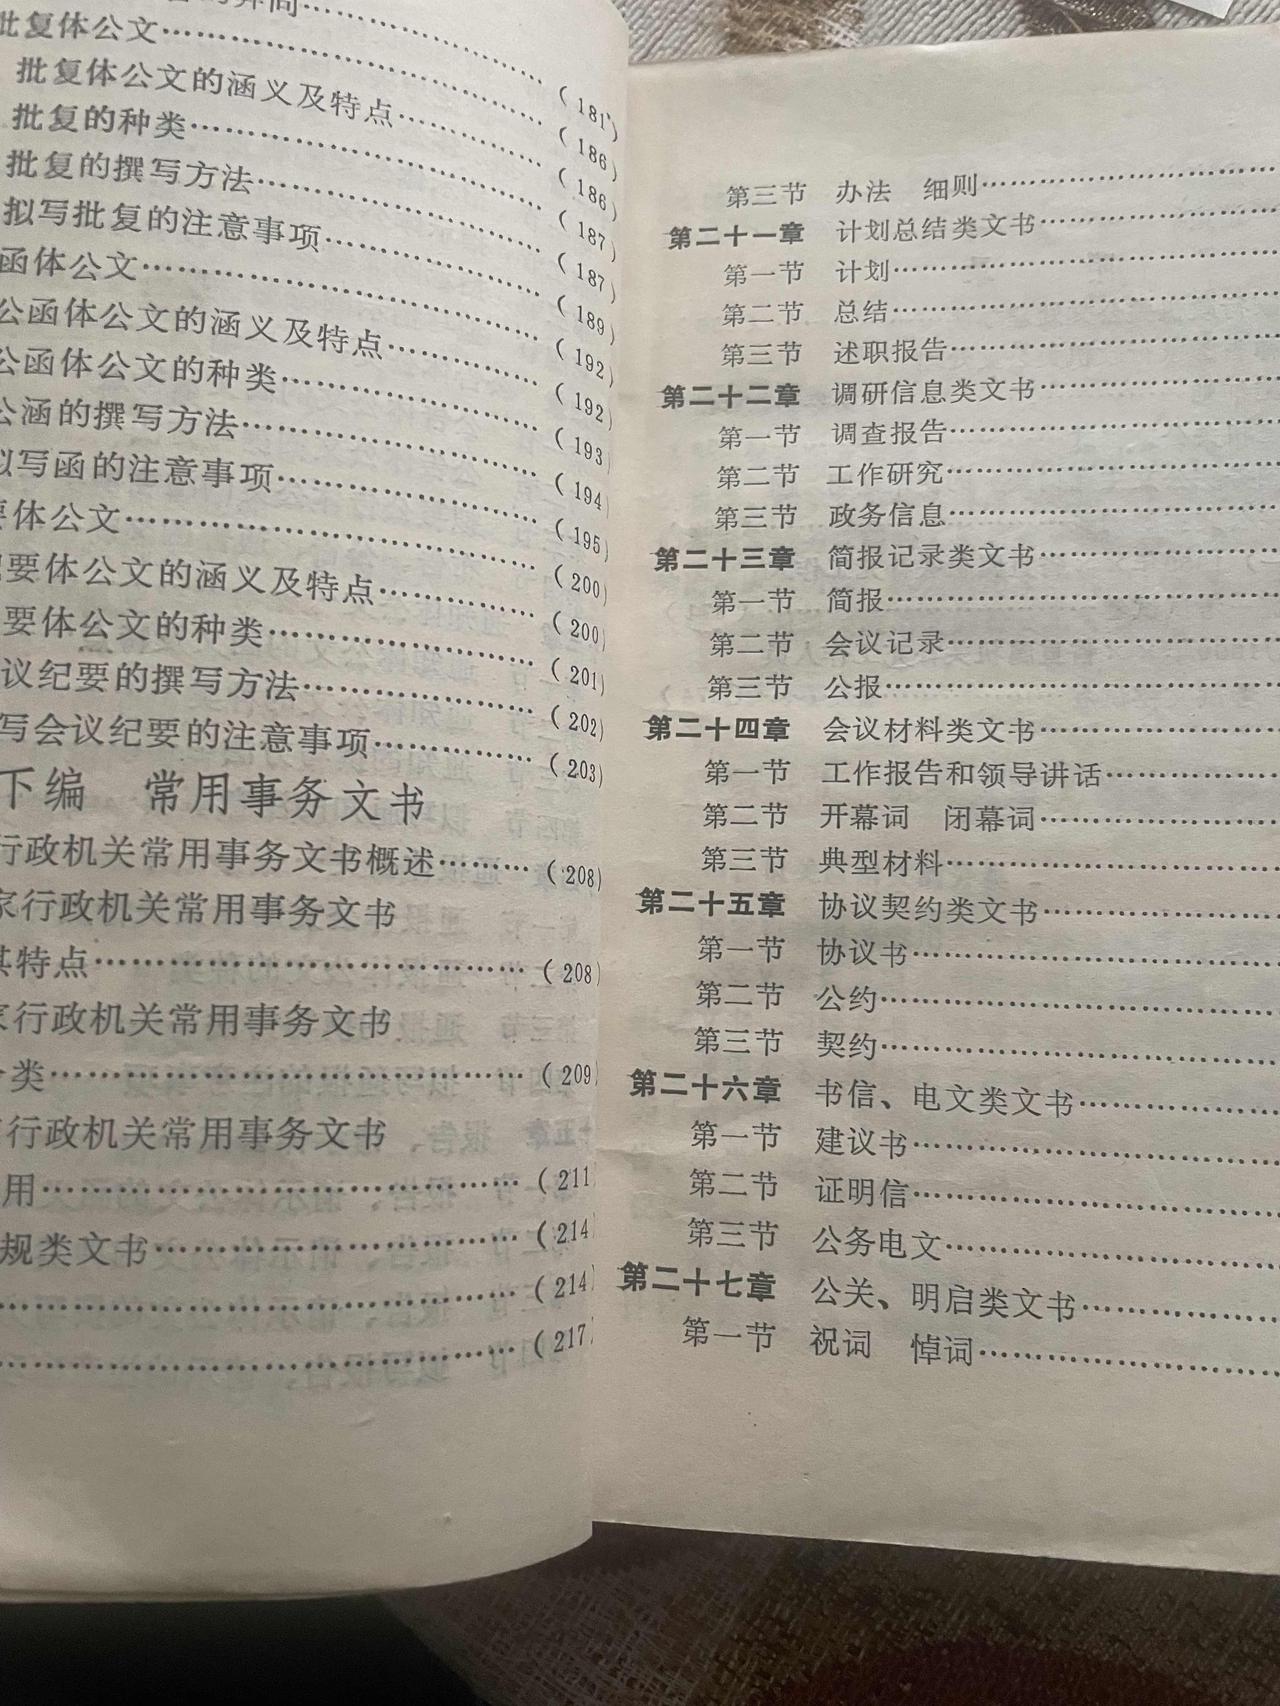 批复体公文……………………………(181)
批复体公文的涵义及特点……………(186)
批复的种类……………………………(186)
批复的撰写方法………………………(187)
拟写批复的注意事项…………………(187)
函体公文………………………………(189)
公函体公文的涵义及特点……………(192)
公函体公文的种类……………………(192)
公涵的撰写方法………………………(193)
拟写函的注意事项……………………(194)
要体公文………………………………(195)
要体公文的涵义及特点………………(200)
要体公文的种类………………………(200)
议纪要的撰写方法……………………(201)
写会议纪要的注意事项………………(202)
(203)
下编 常用事务文书
行政机关常用事务文书概述………(208)
家行政机关常用事务文书
其特点……………………………(208)
家行政机关常用事务文书
类…………………………………(209)
行政机关常用事务文书
用…………………………………(211)
规类文书…………………………(214)
……………………………………(214)
……………………………………(217)
第三节 办法 细则……………………
第二十一章 计划总结类文书……………………
第一节 计划……………………
第二节 总结……………………
第三节 述职报告……………………
第二十二章 调研信息类文书……………………
第一节 调查报告……………………
第二节 工作研究……………………
第三节 政务信息……………………
第二十三章 简报记录类文书……………………
第一节 简报……………………
第二节 会议记录……………………
第三节 公报……………………
第二十四章 会议材料类文书……………………
第一节 工作报告和领导讲话……………………
第二节 开幕词 闭幕词……………………
第三节 典型材料……………………
第二十五章 协议契约类文书……………………
第一节 协议书……………………
第二节 公约……………………
第三节 契约……………………
第二十六章 书信、电文类文书……………………
第一节 建议书……………………
第二节 证明信……………………
第三节 公务电文……………………
第二十七章 公关、明启类文书……………………
第一节 祝词 悼词……………………